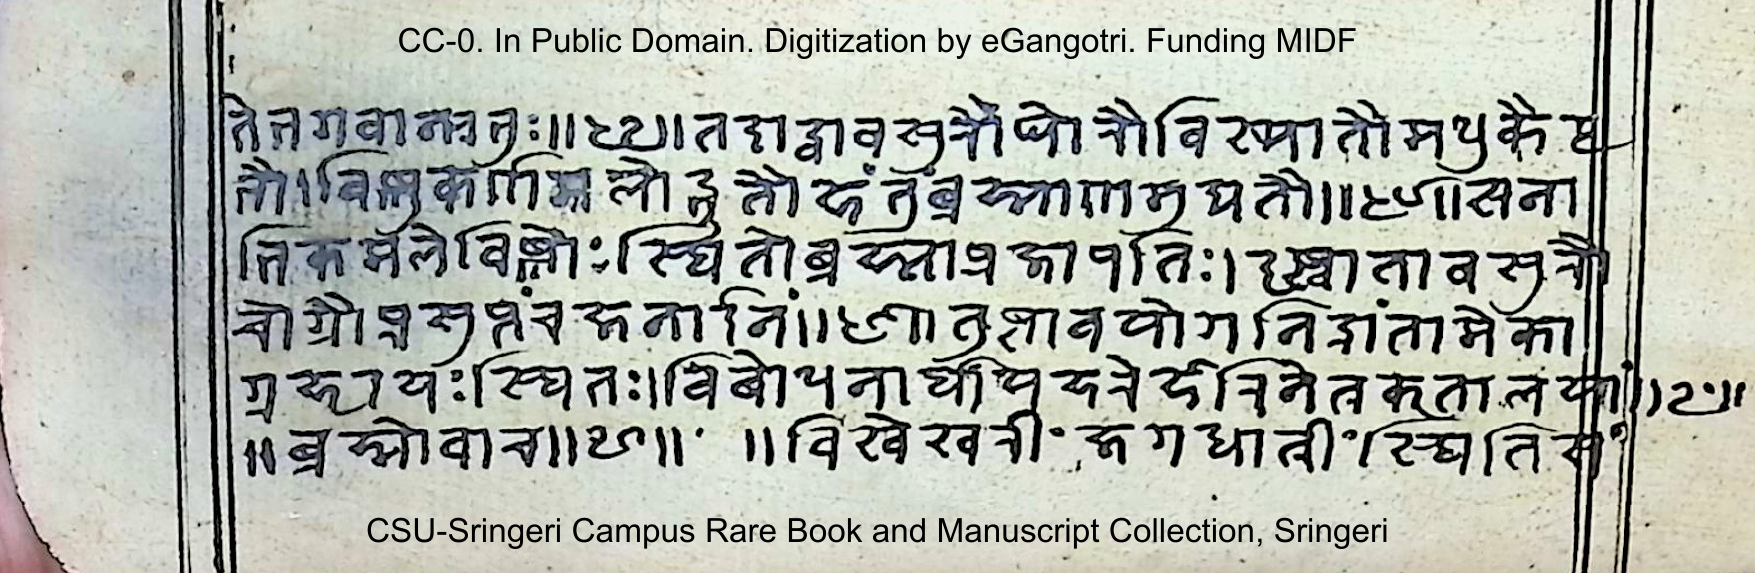 CC-0. In Public Domain. Digitization by eGangotri. Funding MIDF
ते भगवान्प्रभुः॥४९॥तदाद्वावसुरौघोरौविख्यातौमधुकैट
भौ।विष्णुकर्णमलोद्भूतौहंतुंब्रह्माणमुद्यतौ॥५०॥सना
भिकमलेविष्णोःस्थितोब्रह्माप्रजापतिः।दृष्ट्वातावसुरौ
चोग्रौप्रसुप्तंचजनार्दनं॥५१॥तुष्टावयोगनिद्रांतामेका
ग्रहृदयःस्थितः।विबोधनार्थायहरेर्हरिनेत्रकृतालयां॥५२॥
॥ब्रह्मोवाच॥५३॥ ॥विश्वेश्वरीं जगद्धात्रीं स्थितिसं
CSU-Sringeri Campus Rare Book and Manuscript Collection, Sringeri